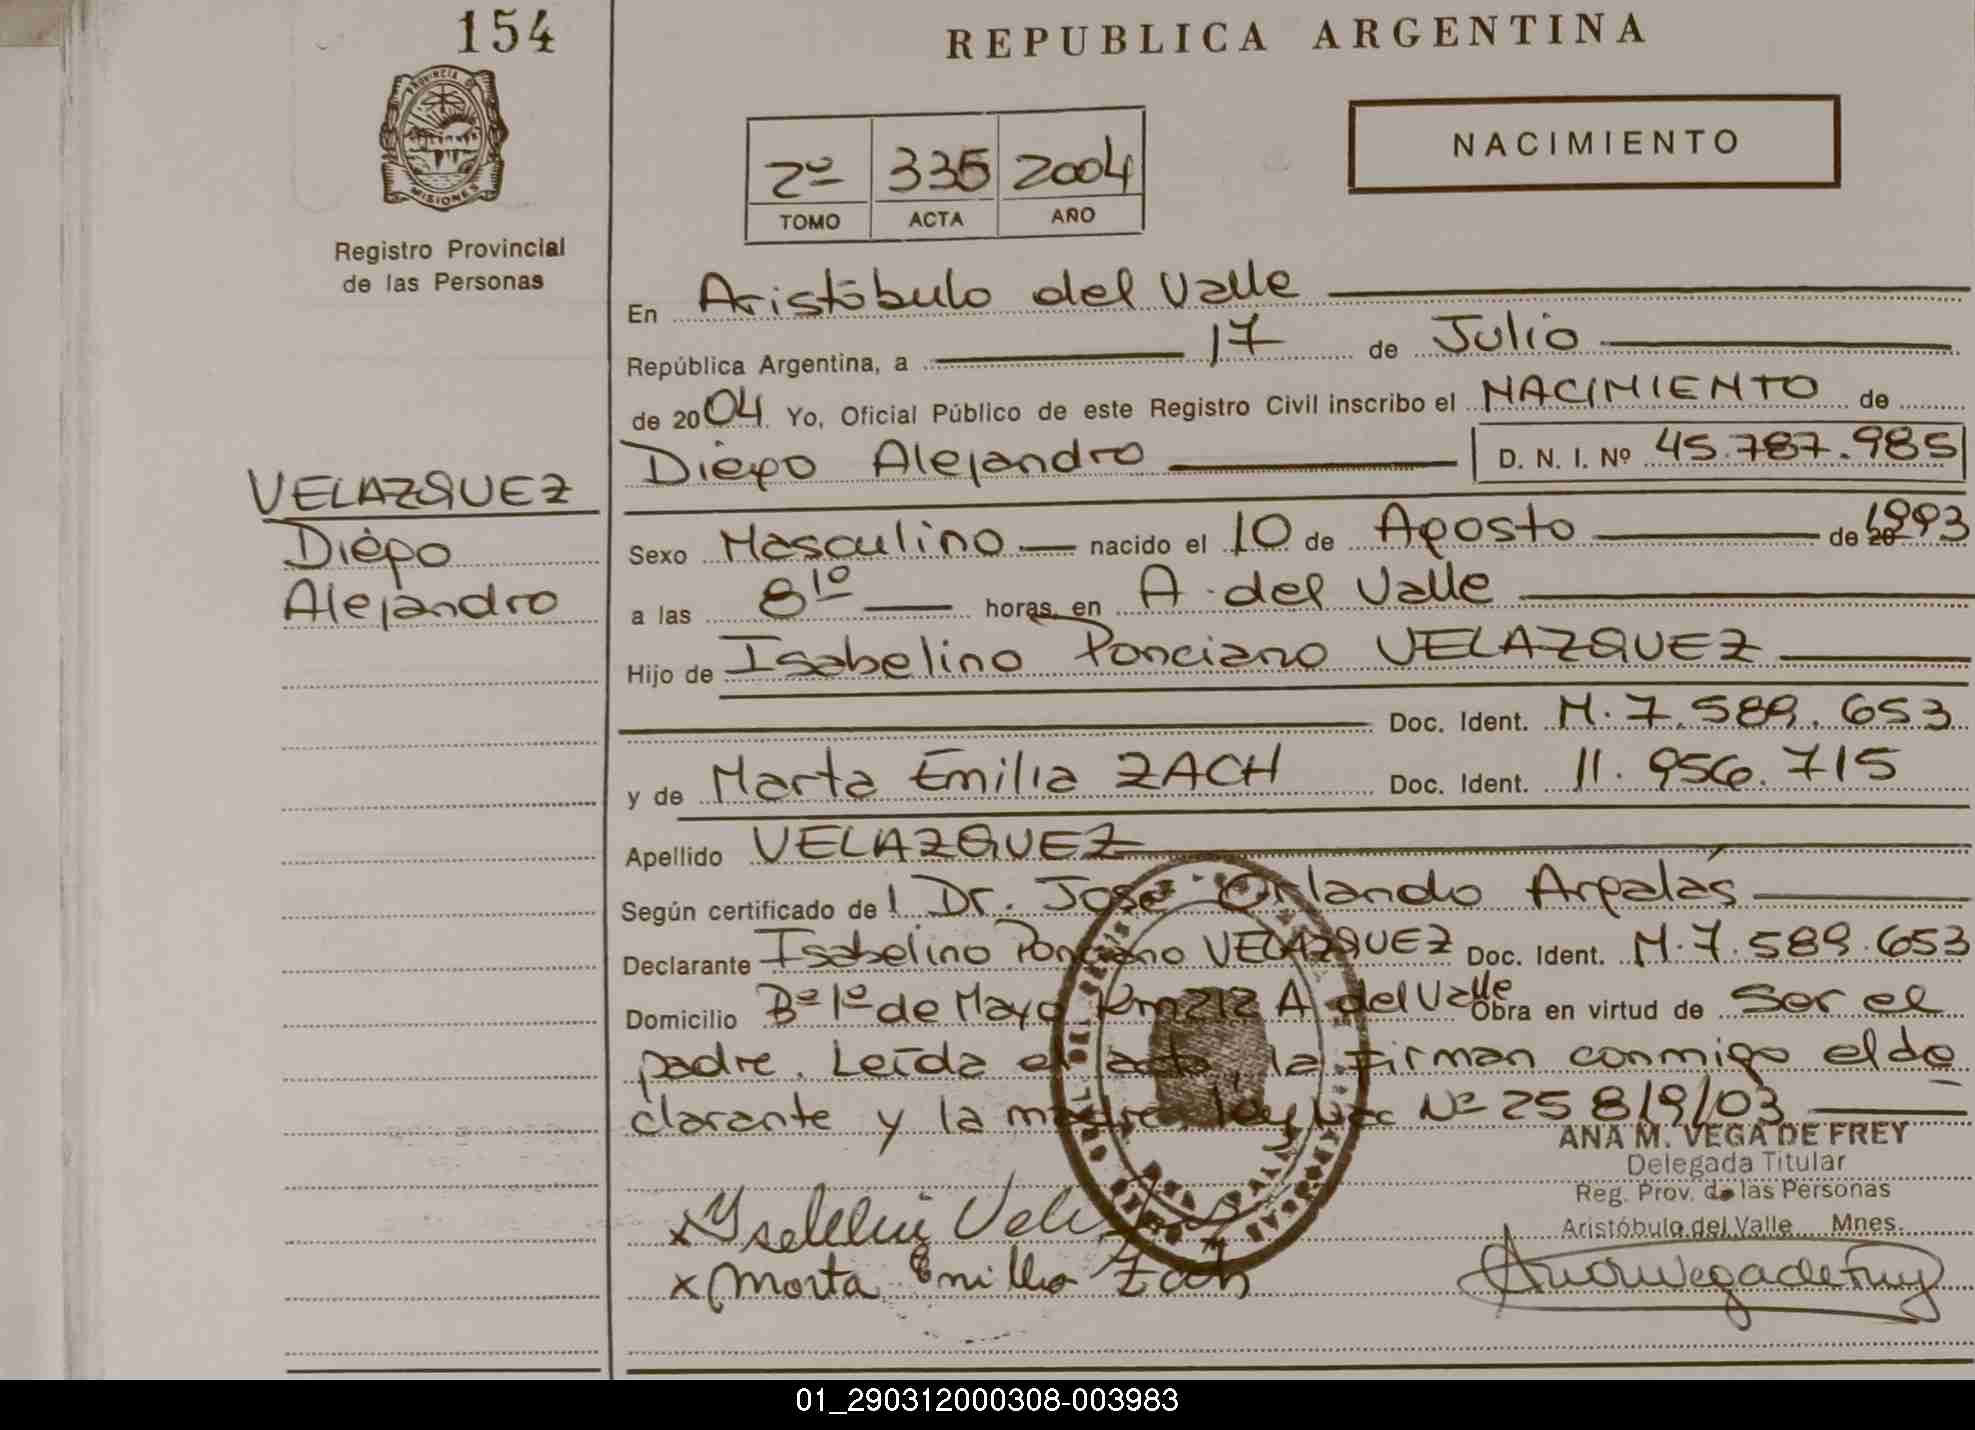 154
PROVINCIA DE
MISIONES
Registro Provincial
de las Personas
VELAZQUEZ
Diego
Alejandro
REPUBLICA ARGENTINA
NACIMIENTO
2º 335 2004
TOMO ACTA AÑO
En Aristóbulo del Valle
República Argentina, a 17 de Julio
de 2004. Yo, Oficial Público de este Registro Civil inscribo el NACIMIENTO de
Diego Alejandro D. N. I. Nº 45.787.985
Sexo Masculino nacido el 10 de Agosto de 20 1993
a las 8 10 horas, en A. del Valle
Hijo de Isabelino Ponciano VELAZQUEZ
Doc. Ident. M. 7.589.653
y de Marta Emilia ZACH Doc. Ident. 11.956.715
Apellido VELAZQUEZ
Según certificado de l Dr. José Orlando Argalás
Declarante Isabelino Ponciano VELAZQUEZ Doc. Ident. M.7.589.653
Domicilio Bº 1º de Mayo Km 212 A. del Valle Obra en virtud de ser el
padre. Leída el acta, la firman conmigo el de
clarante y la madre. Nº 25 8/9/03
ANA M. VEGA DE FREY
Delegada Titular
Reg. Prov. de las Personas
Aristóbulo del Valle Mnes.
x Marta Emilia Zach
01_290312000308-003983